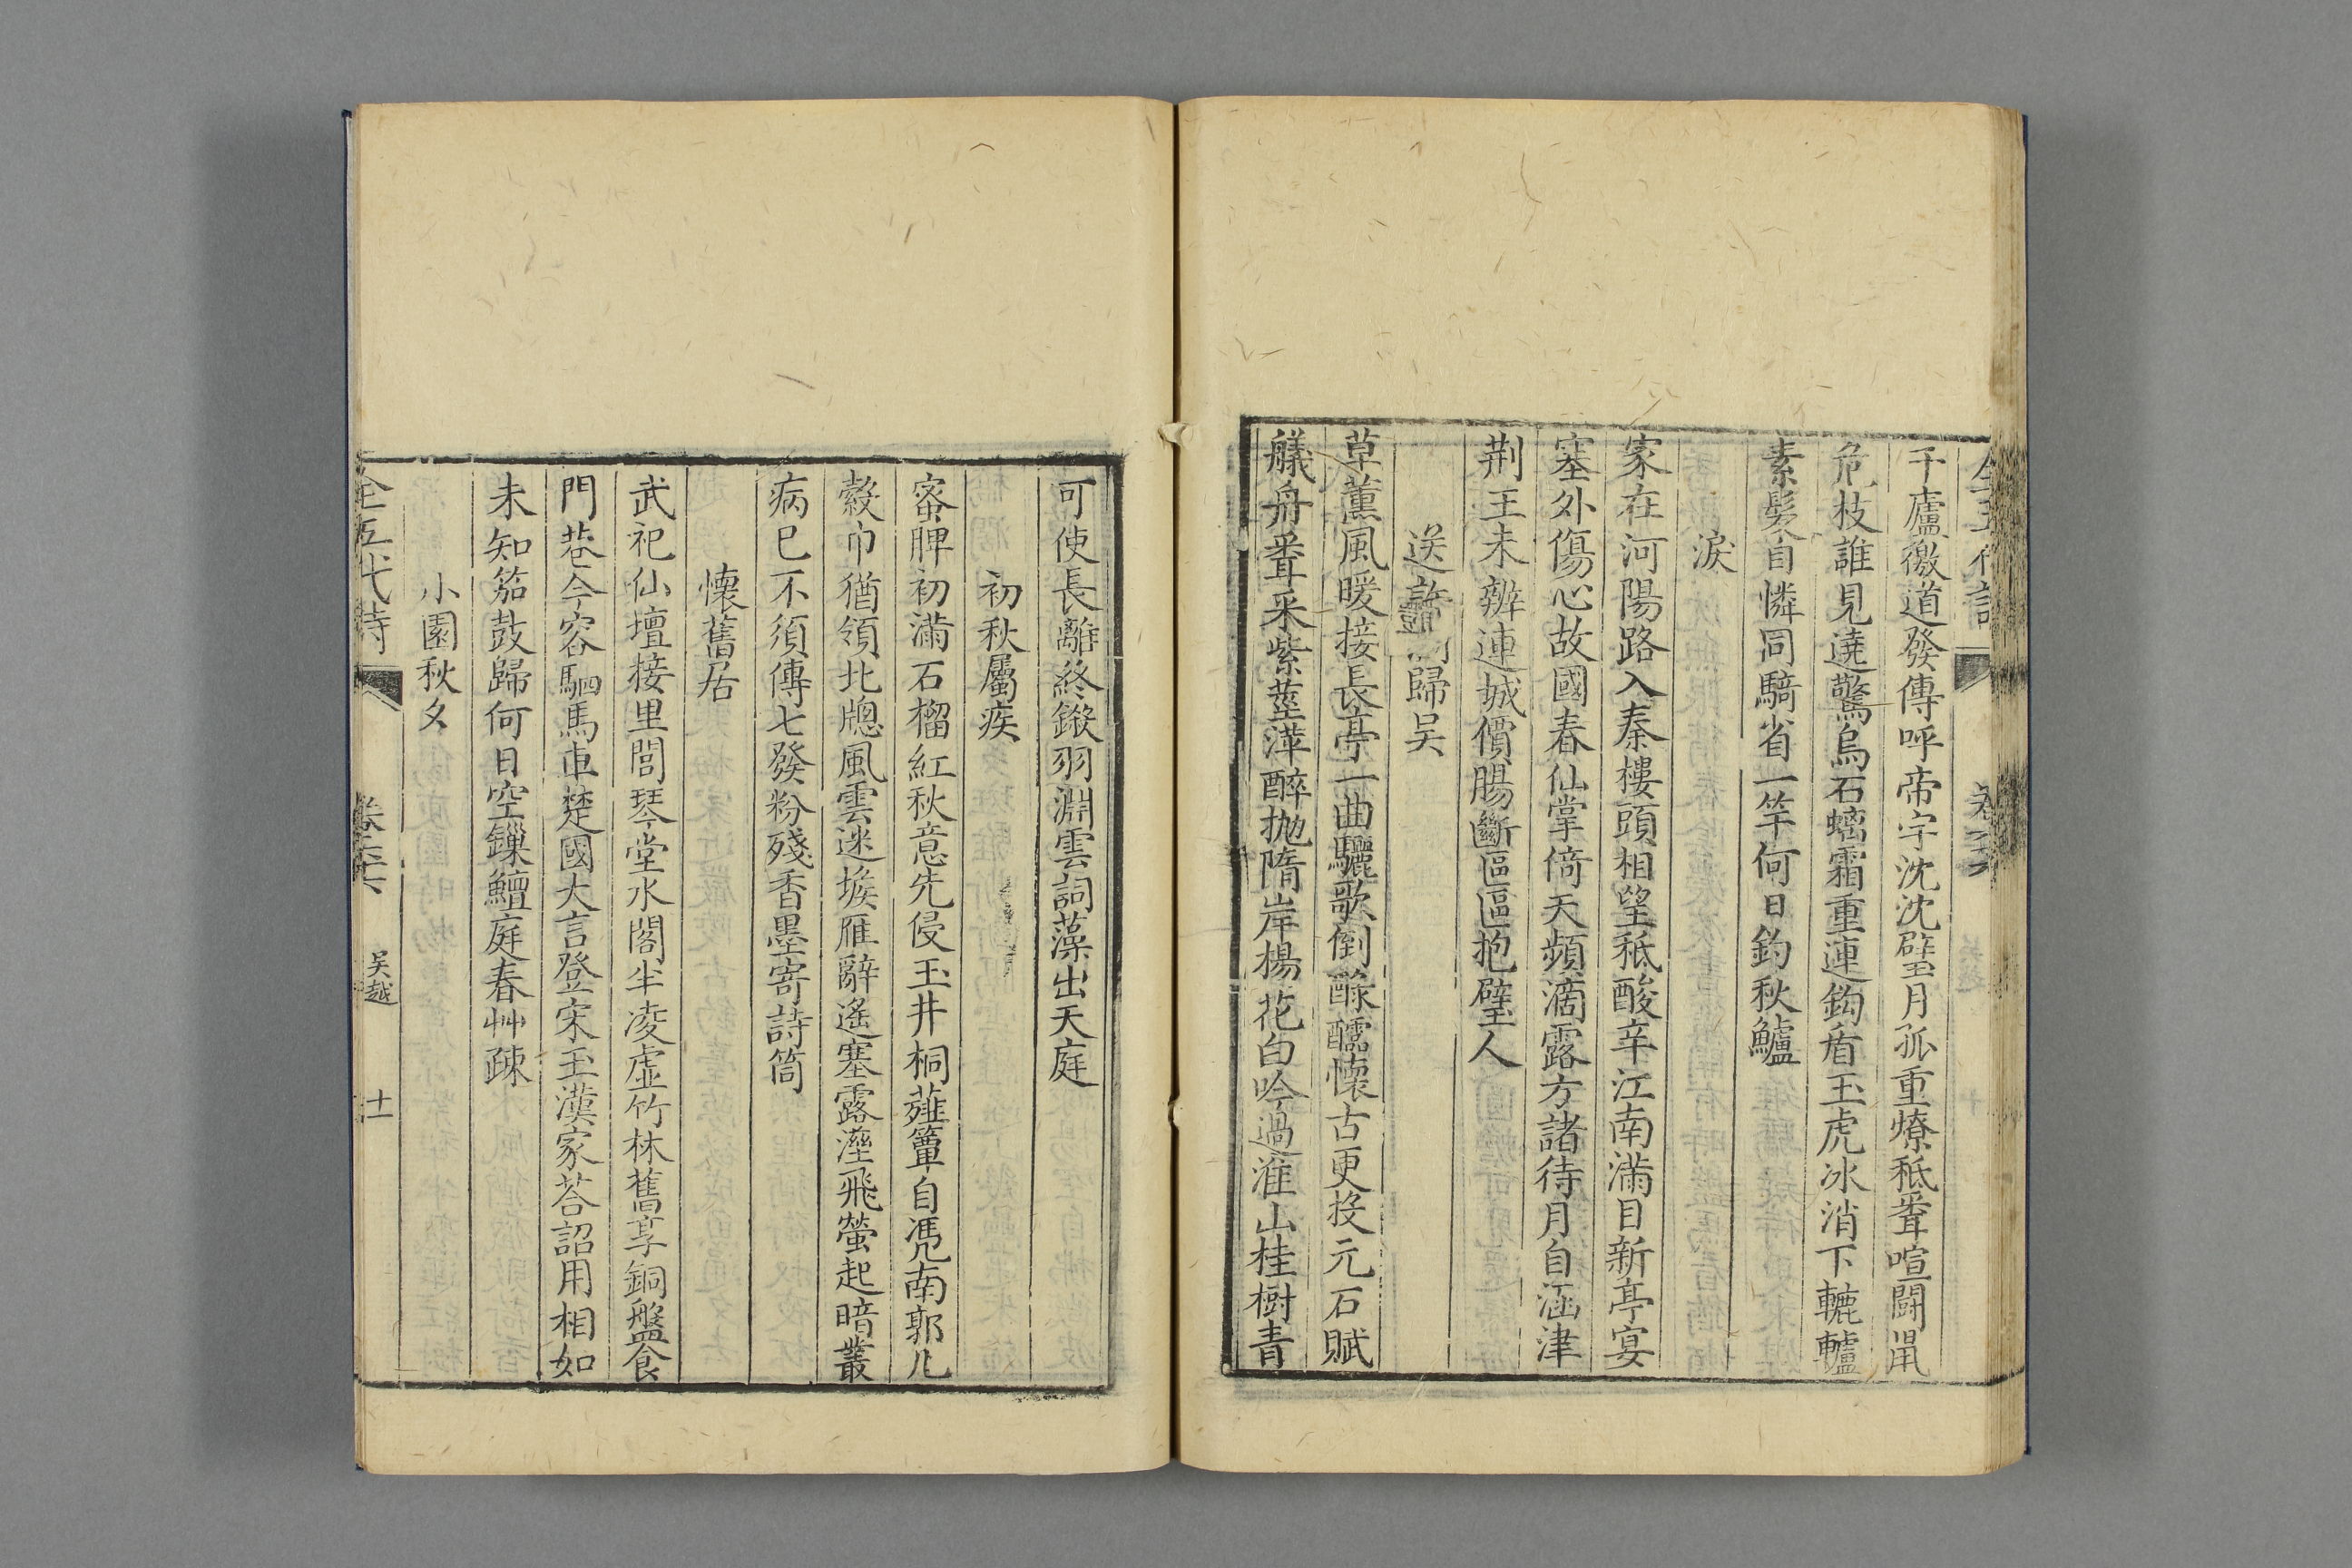 全五代詩 卷
千廬徼道發傳呼帝宇沈沈璧月孤重燎秪聋喧闘鼠
危枝誰見遶驚烏石螭霜重連鈎盾玉虎冰消下轆轤
素髮自憐同騎省一竿何日釣秋鱸
淚
家在河陽路入秦樓頭相望秪酸辛江南滿目新亭宴
塞外傷心故國春仙掌倚天頻滴露方諸待月自涵津
荆王未辨連城價腸斷區區抱璧人
送 歸吴
草薰風暖接長亭一曲驪歌倒醁醽懷古更投元石賦
艤舟聋采紫莖萍醉抛隋岸楊花白吟過淮山桂樹青
可使長離終鎩羽淵雲詞藻出天庭
初秋屬疾
蜜脾初滿石榴紅秋意先侵玉井桐薤簟自凴南郭几
縠巾猶領北牕風雲迷堠雁辭遙塞露溼飛螢起暗叢
病已不須傳七發粉殘香墨寄詩筒
懷舊居
武祀仙壇接里閭琴堂水閣半凌虛竹林舊享銅盤食
門巷今容駟馬車楚國大言登宋玉漢家荅詔用相如
未知笳鼓歸何日空鏁鱣庭春艸疎
小園秋夕
全五代詩 卷 吴越 十一